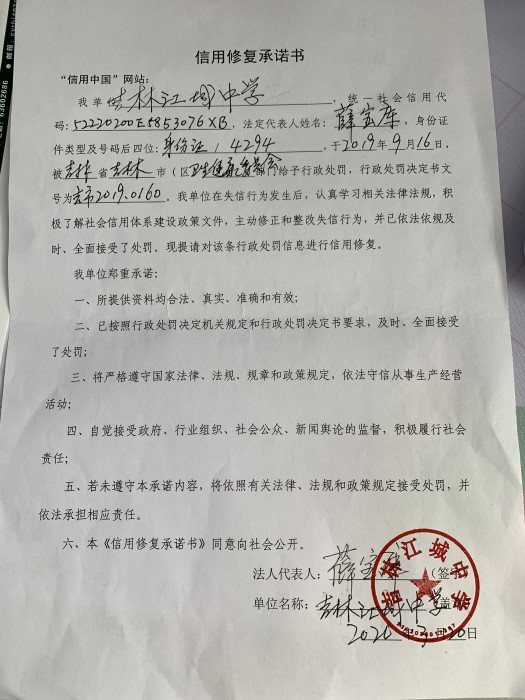 信用修复承诺书
“信用中国”网站：
我单位吉林江城中学，统一社会信用代
码：52220200E5853076XB，法定代表人姓名：薛宝库，身份证
件类型及号码后四位：身份证，4294，于2019年9月16日，
被吉林省吉林市（区卫生健康委员会部门给予行政处罚，行政处罚决定书文
号为吉市2019.0160。我单位在失信行为发生后，认真学习相关法律法规，积
极了解社会信用体系建设政策文件，主动修正和整改失信行为，并已依法依规及
时、全面接受了处罚。现提请对该条行政处罚信息进行信用修复。
我单位郑重承诺：
一、所提供资料均合法、真实、准确和有效；
二、已按照行政处罚决定机关规定和行政处罚决定书要求，及时、全面接受
了处罚；
三、将严格遵守国家法律、法规、规章和政策规定，依法守信从事生产经营
活动；
四、自觉接受政府、行业组织、社会公众、新闻舆论的监督，积极履行社会
责任；
五、若未遵守本承诺内容，将依照有关法律、法规和政策规定接受处罚，并
依法承担相应责任。
六、本《信用修复承诺书》同意向社会公开。
法人代表人：薛宝库（签字
单位名称：吉林江城中学（盖
2020年3月20日
吉林江城中学